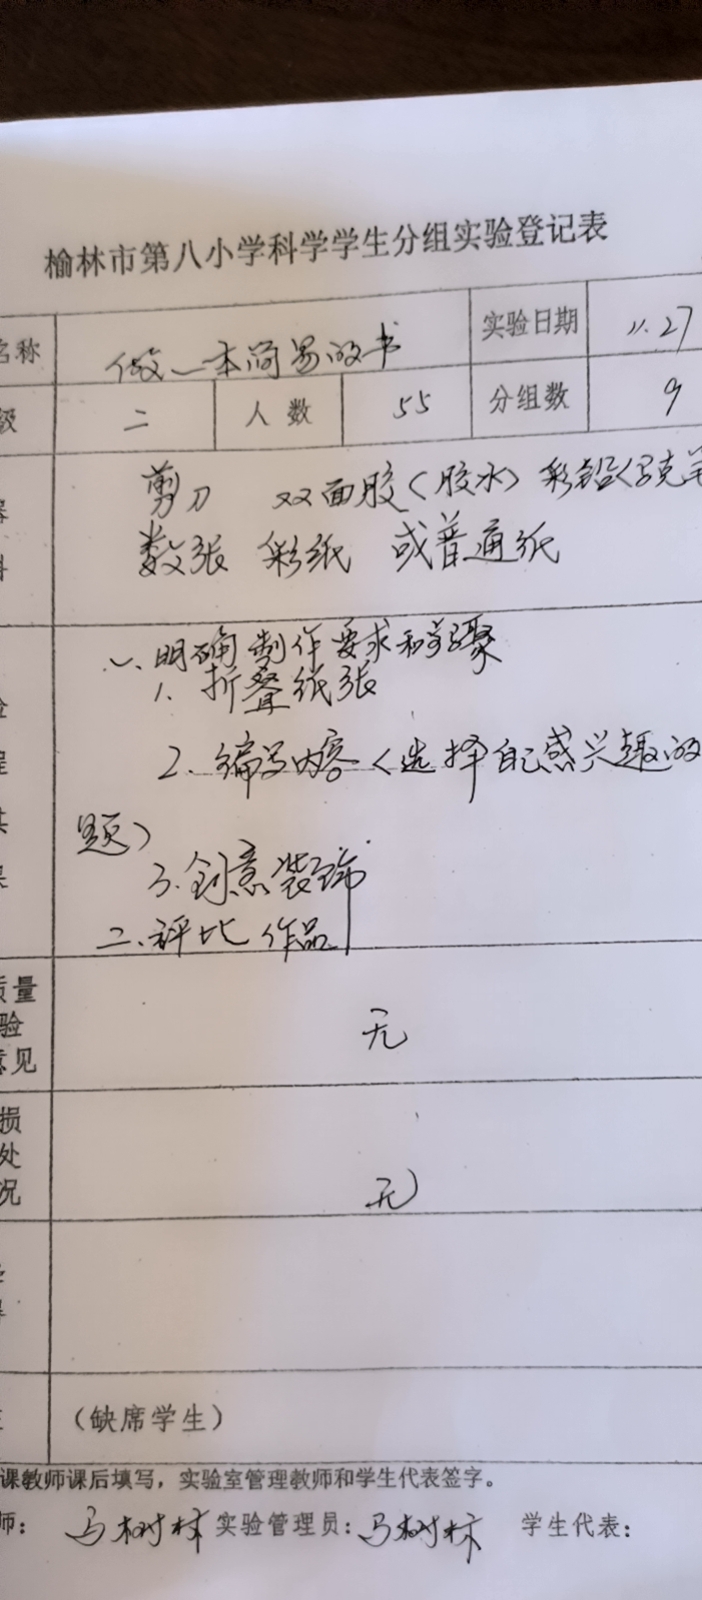 榆林市第八小学科学学生分组实验登记表
名称 做一本简易的书 实验日期 11.27
级 二 人数 55 分组数 9
剪刀 双面胶(胶水) 彩铅
料 数张 彩纸 或普通纸
一、明确制作要求和步骤
1. 折叠纸张
2. 编写内容(选择自己感兴趣的
题)
3. 创意装饰
二、评比作品
质量
验 无
意见
损
处
况 无
(缺席学生)
课教师课后填写,实验室管理教师和学生代表签字。
师: 马树林 实验管理员: 马树林 学生代表: